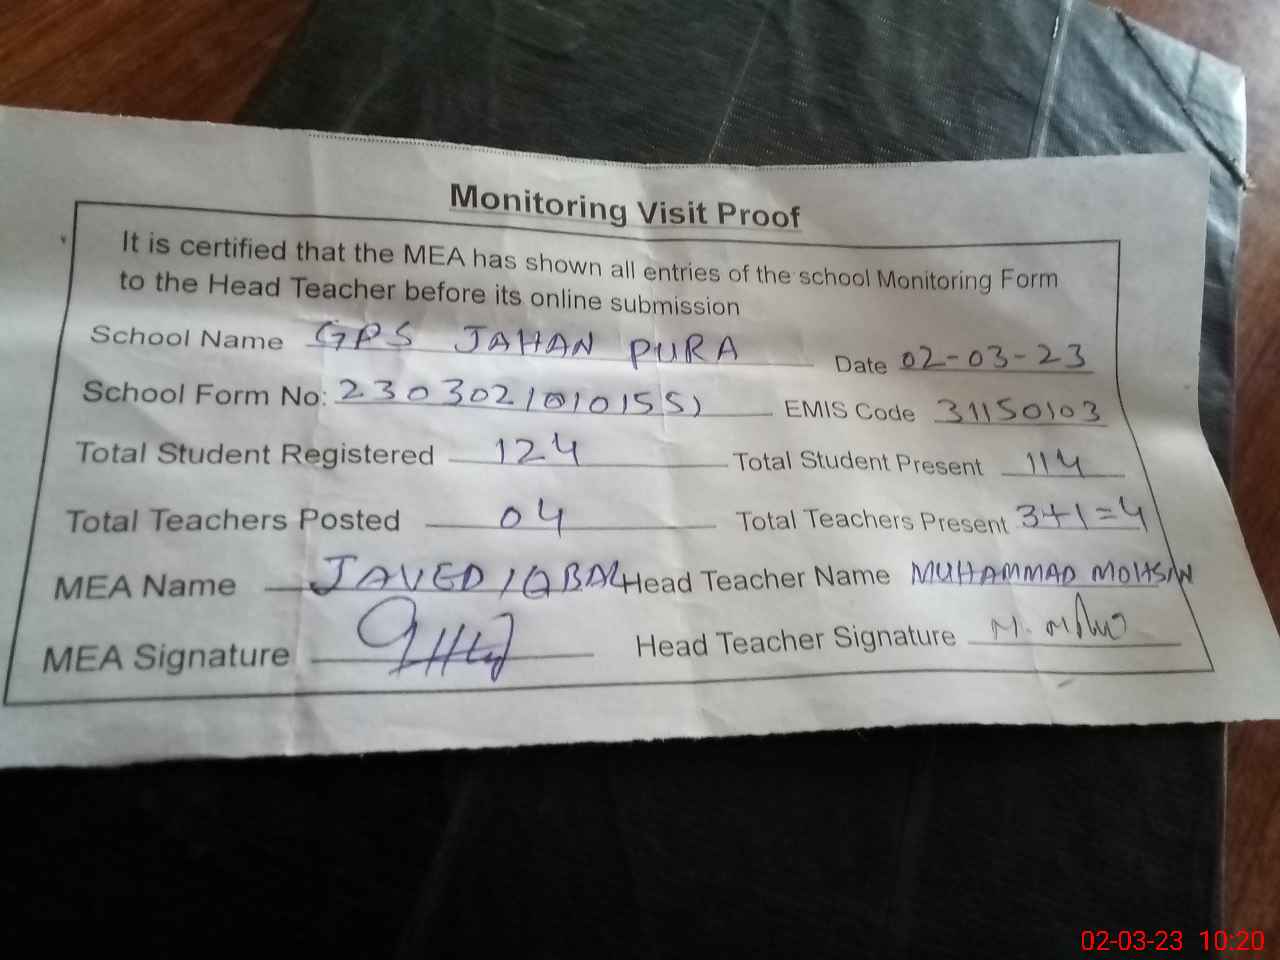 Monitoring Visit Proof
It is certified that the MEA has shown all entries of the school Monitoring Form
to the Head Teacher before its online submission
School Name GPS JAHAN PURA Date 02-03-23
School Form No: EMIS Code 31150103
Total Student Registered 124 Total Student Present 114
Total Teachers Posted 04 Total Teachers Present 3+1=4
MEA Name JAVED IQBAL Head Teacher Name MUHAMMAD MOHSIN
MEA Signature Head Teacher Signature
02-03-23 10:20